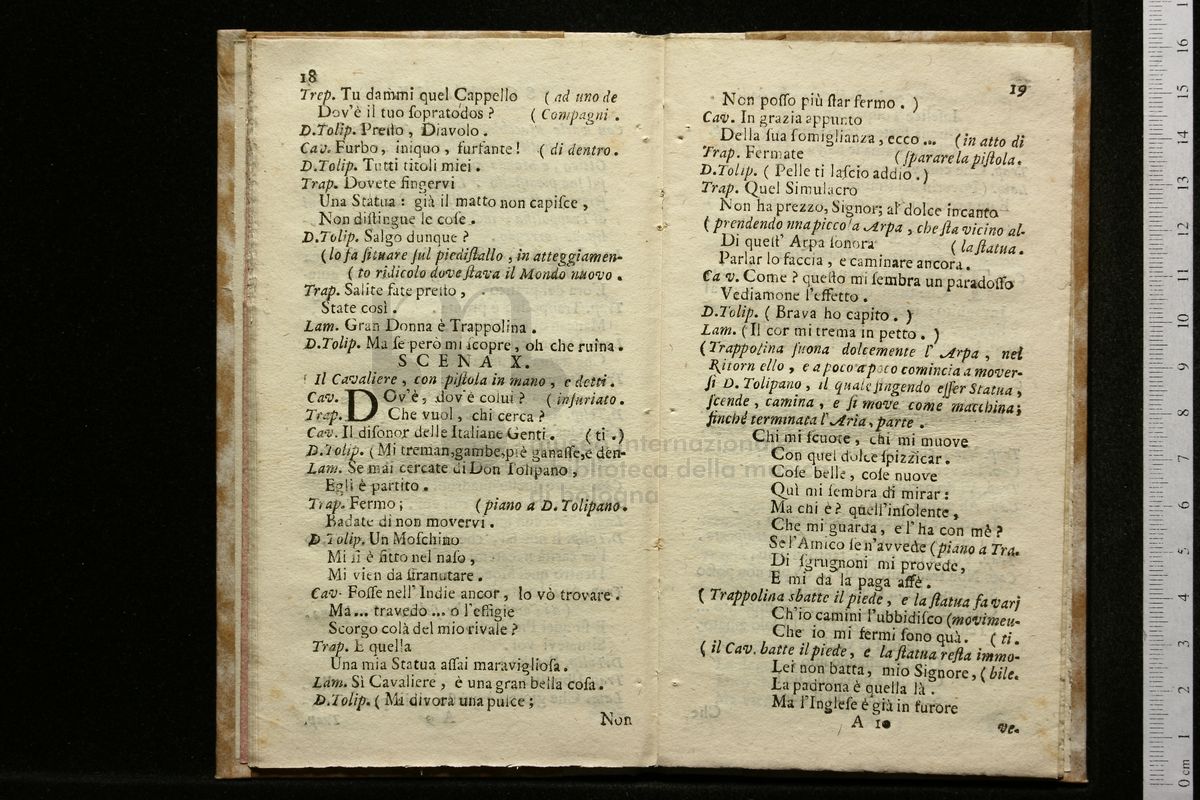 18
Trep. Tu dammi quel Cappello ( ad uno de
Dov'è il tuo sopratodos ? ( Compagni .
D.Tolip. Presto , Diavolo .
Cav. Furbo, iniquo , furfante ! ( di dentro .
D.Tolip. Tutti titoli miei .
Trap. Dovete fingervi
Una Statua : già il matto non capisce ,
Non distingue le cose .
D.Tolip. Salgo dunque ?
( lo fa situare sul piedistallo , in atteggiamen-
( to ridicolo dove stava il Mondo nuovo .
Trap. Salite fate presto ,
State così .
Lam. Gran Donna è Trappolina .
D.Tolip. Ma se però mi scopre, oh che ruina .
SCENA X.
Il Cavaliere , con pistola in mano , e detti .
Cav. DOv'è, dov'è colui ? ( infuriato .
Trap. Che vuol, chi cerca ?
Cav. Il disonor delle Italiane Genti . ( ti .)
D.Tolip. ( Mi treman,gambe,piè ganasse,e den-
Lam. Se mai cercate di Don Tolipano ,
Egli è partito .
Trap. Fermo ; ( piano a D. Tolipano.
Badate di non movervi .
D.Tolip. Un Moschino
Mi si è fitto nel naso ,
Mi vien da stranutare .
Cav. Fosse nell' Indie ancor , lo vò trovare .
Ma ... travedo ... o l'effigie
Scorgo colà del mio rivale ?
Trap. E quella
Una mia Statua assai maravigliosa .
Lam. Sì Cavaliere , è una gran bella cosa .
D.Tolip. ( Mi divora una pulce ;
Non
19
Non posso più star fermo . )
Cav. In grazia appunto
Della sua somiglianza , ecco ... (in atto di
Trap. Fermate ( sparare la pistola .
D.Tolip. ( Pelle ti lascio addio .)
Trap. Quel Simulacro
Non ha prezzo, Signor; al dolce incanto
( prendendo una piccola Arpa , che sta vicino al-
Di quest' Arpa sonora ( la statua .
Parlar lo faccia , e caminare ancora .
Cav. Come ? questo mi sembra un paradosso
Vediamone l'effetto .
D.Tolip. ( Brava ho capito . )
Lam. ( Il cor mi trema in petto . )
(Trappolina suona dolcemente l' Arpa , nel
Ritornello , e a poco a poco comincia a mover-
si D. Tolipano , il quale fingendo esser Statua ,
scende , camina , e si move come macchina;
finchè terminata l'Aria, parte .
Chi mi scuote , chi mi muove
Con quel dolce spizzicar .
Cose belle , cose nuove
Quì mi sembra di mirar :
Ma chi è ? quell'insolente ,
Che mi guarda , e l' ha con mè ?
Se l'Amico se n'avvede (piano a Tra.
Di sgrugnoni mi provede,
E mi da la paga affè .
( Trappolina sbatte il piede , e la statua fa varj
Ch'io camini l'ubbidisco (movimeu-
Che io mi fermi sono quà. ( ti .
( il Cav. batte il piede , e la statua resta immo-
Lei non batta , mio Signore, ( bile.
La padrona è quella là .
Ma l'Inglese è già in furore
A 10
ve.
museo internazionale
biblioteca della mu
di bologna
0 cm 1 2 3 4 5 6 7 8 9 10 11 12 13 14 15 16